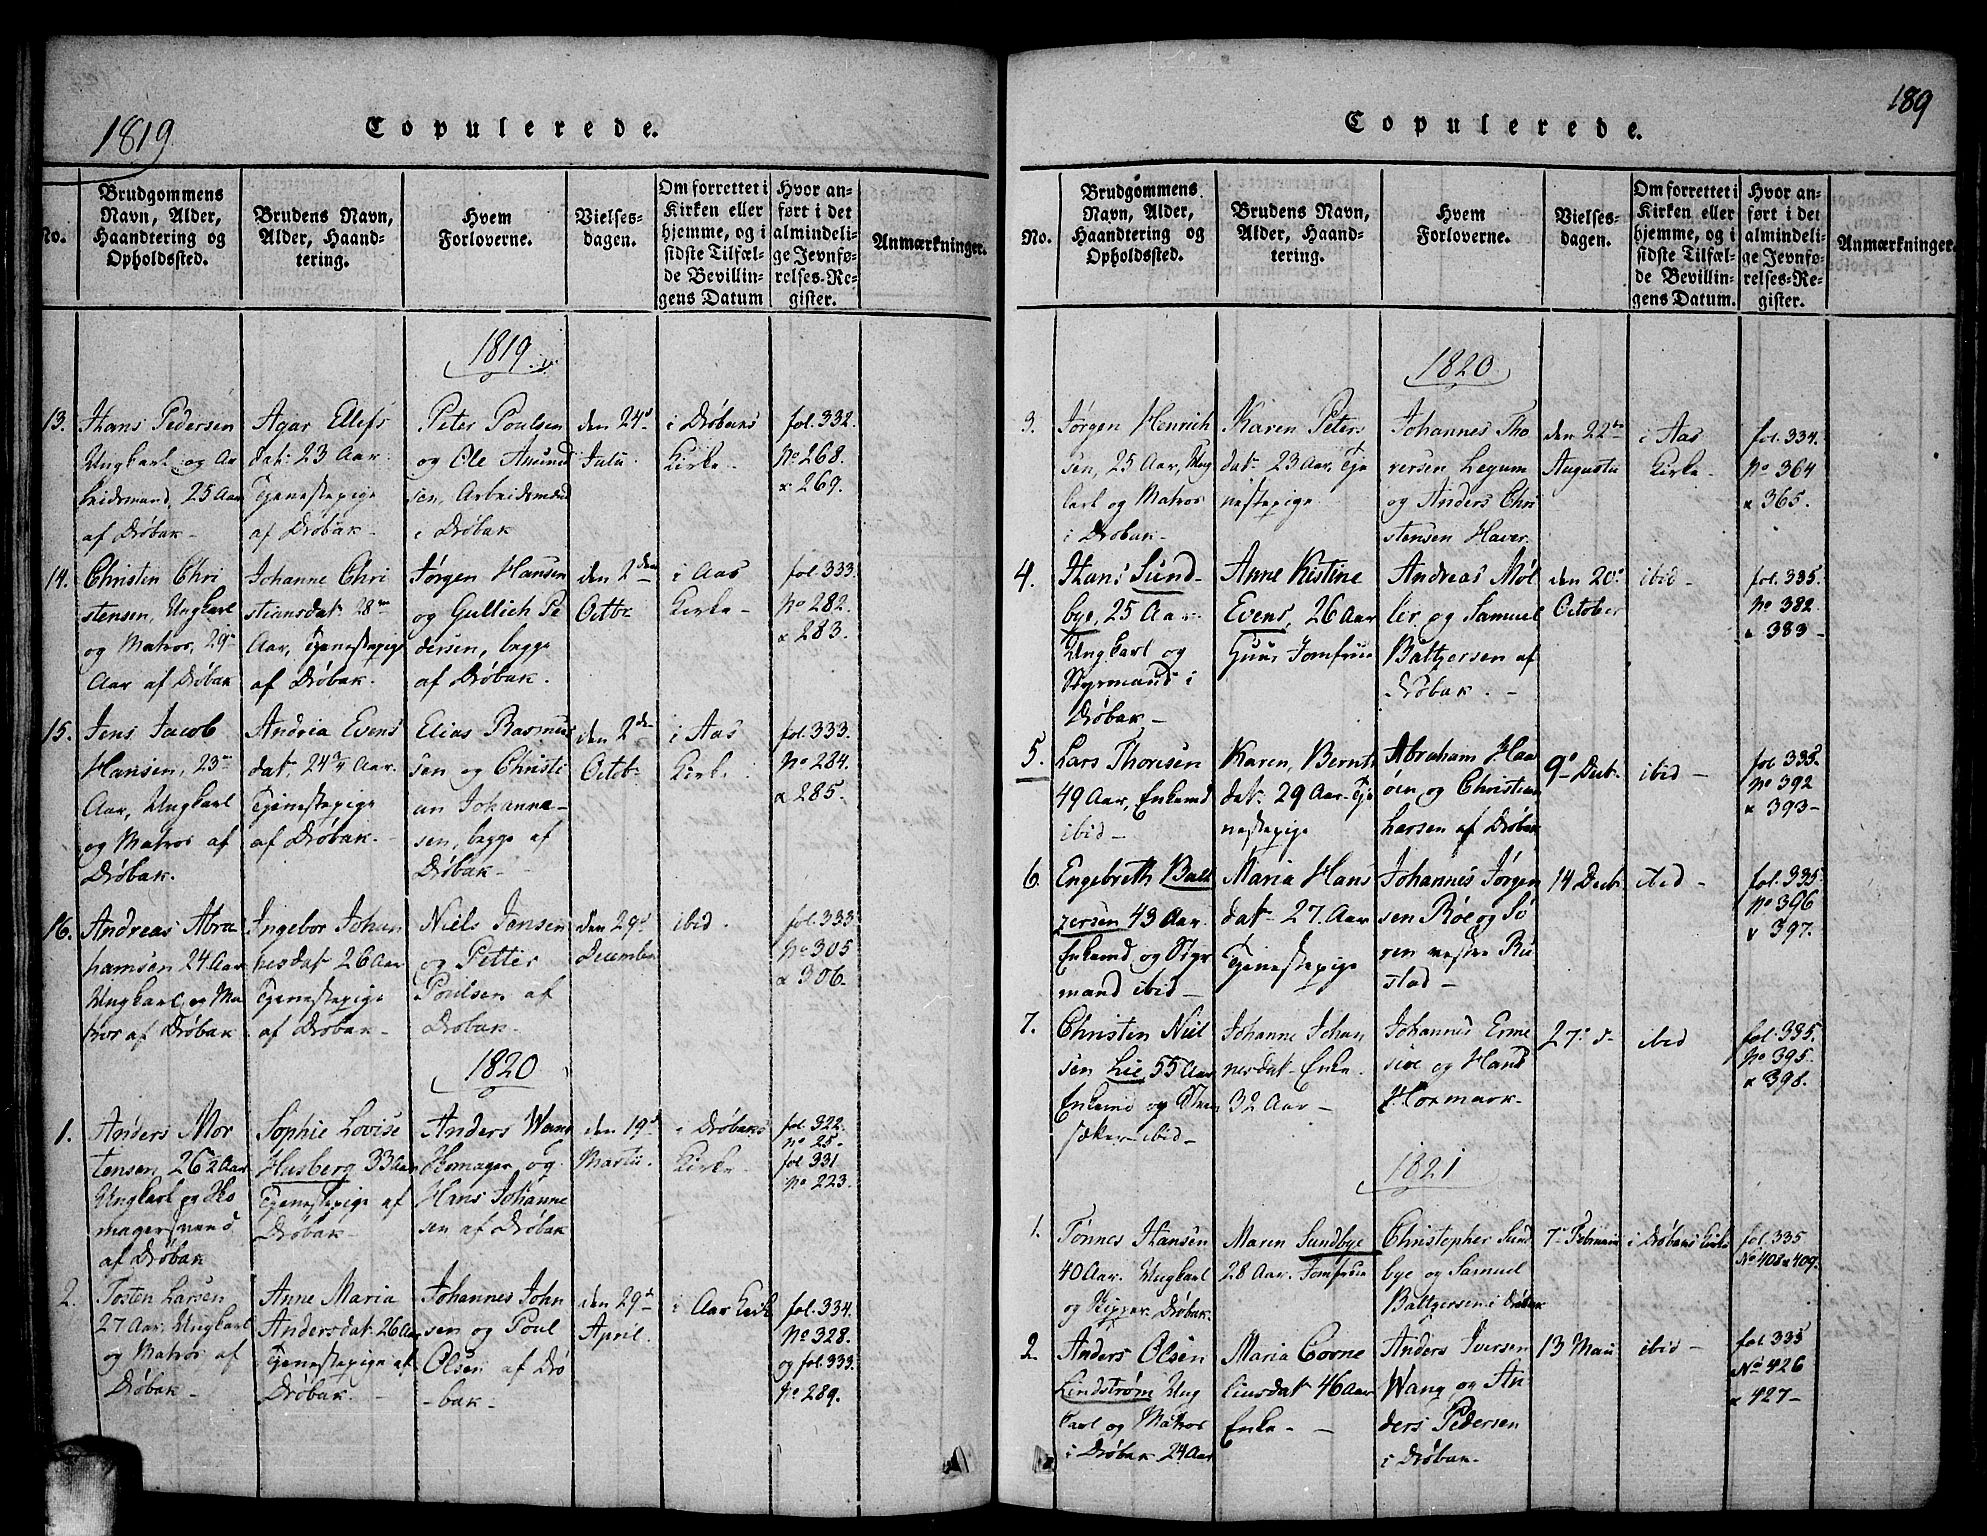 1819
Copulerede.
No.
Brudgommens
Navn, Alder,
Haandtering og
Opholdssted.
Brudens Navn,
Alder, Haand-
tering.
Hvem
Forloverne.
Vielses-
dagen.
Om forrettet i
Kirken eller
hjemme, og i
sidste Tilfæl-
de Bevillin-
gens Datum
Hvor an-
ført i det
almindeli-
ge Jevnfø-
relses-Re-
gister.
Anmærkninger.
1819.
13.
Hans Pedersen
Ungkarl og Ar
beidsmand, 25 Aar
af Drøbak -
Agar Ellefs
dat: 23 Aar.
Tjenestepige
af Drøbak -
Peter Poulsen
og Ole Amund
sen, Arbeidsmænd
i Drøbak
den 24de
Julii
i Drøbaks
Kirke -
fol. 332.
No 268.
& 269.
14.
Christen Chri
stensen, Ungkarl
og Matros, 29
Aar af Drøbak
Johanne Chri
stiansdat: 28
Aar, Tjenestepige
af Drøbak.
Jørgen Hansen
og Gullich Pe
dersen, begge
af Drøbak.
den 2den
Octbr
i Aas
Kirke -
fol. 333.
No 282.
& 283.
15.
Jens Jacob
Hansen, 23
Aar, Ungkarl
og Matros af
Drøbak.
Andrea Evens
dat. 24 3/4 Aar.
Tjenestepige
af Drøbak. -
Elias Rasmus
sen og Christi
an Johanne-
sen, begge af
Drøbak -
den 2den
Octbr
i Aas
Kirke
fol. 333.
No 284.
& 285.
16.
Andreas Abra
hamsen 24 Aar
Ungkarl og Ma
tros af Drøbak
Ingebor Johan
nesdat 26 Aar
Tjenestepige
af Drøbak -
Niels Jensen
og Petter
Poulsen af
Drøbak.
den 29de
December
ibid.
fol. 333.
No 305
& 306.
1820
1.
Anders Mor
tensen 26 1/2 Aar
Ungkarl og Sko
magersvend
af Drøbak
Sophie Lovise
Husberg 33 Aar
Tjenestepige af
Drøbak -
Anders Wang
Skomager og
Hans Johanne
sen af Drøbak
den 19de
Martii.
i Drøbaks
Kirke -
fol. 322.
No 25 -
fol 331
No 223.
2.
Tosten Larsen
27 Aar. Ungkarl
og Matros af
Drøbak -
Anne Maria
Andersdat 26 Aar
Tjenestepige af
Drøbak. -
Johannes John
sen og Poul
Olsen af Drø
-bak -
den 29de
April.
i Aas Kirke
fol. 334.
No 328.
og fol. 333.
No 289.
189
Copulerede.
No.
Brudgommens
Navn, Alder,
Haandtering og
Opholdssted.
Brudens Navn,
Alder, Haand-
tering.
Hvem
Forloverne.
Vielses-
dagen.
Om forrettet i
Kirken eller
hjemme, og i
sidste Tilfæl-
de Bevillin-
gens Datum.
Hvor an-
ført i det
almindeli-
ge Jevnfø-
relses-Re-
gister.
Anmærkninger.
1820.
3.
Jørgen Henrich
sen, 25 Aar, Ung
karl og Matros
i Drøbak -
Karen Peters
dat. 23 Aar, Tje
nestepige
Johannes Tho
rersen Legum
og Anders Chri
stensen Haver.
den 22de
Augusti
i Aas
Kirke -
fol. 334.
No 364
& 365.
4.
Hans Sund-
bye, 25 Aar.
Ungkarl og
Styrmand i
Drøbak -
Anne Kistine
Evens, 26 Aar
Jomfrue
Andreas Møl
ler og Samuel
Baltzersen af
Drøbak. -
den 20de
October
ibid -
fol. 335.
No 382.
& 383 -
5.
Lars Thoresen
49 Aar, Enkemd
ibid -
Karen, Bernts
dat. 29 Aar Tje
nestepige
Abraham Haa
øen og Christian
hersen af Drøbak
9de Decbr.
ibid -
fol 335.
No 392
& 393 -
6.
Engebreth Balt
zersen 43 Aar.
Enkemd og Styr
mand ibid -
Maria Hans
dat 27 Aar
Tjenestepige
Johannes Jørgen
sen Røe og Sø
ren vestre Ru
stad -
14 Decbr.
ibid -
fol. 335.
No 396
& 397.
7.
Christen Niel
sen Lie 55 Aar
Enkemd og
ibid -
Johanne Johan
nesdat - Enke.
32 Aar -
Johannes
og Hans
Hormack -
27
ibid
fol. 335.
No 395.
& 398.
1821
1.
Tønnes Hansen
40 Aar. Ungkarl
og Skipper Drøbak.
Maren Sundbye
28 Aar. Jomfrue
Christopher Sund
bye og Samuel
Baltzersen i Drøbak
7de Februarii
i Drøbaks Kirke
fol. 335
No 408 & 409.
2.
Anders Olsen
Lindstrøm Ung
karl og Matros
i Drøbak 24 Aar
Maria Corne
liusdat 46 Aar
Enke - -
Anders Iversen
Wang og An
ders Pedersen
i Drøbak.
13 Maii
ibid -
fol. 335
No 426
& 427 -